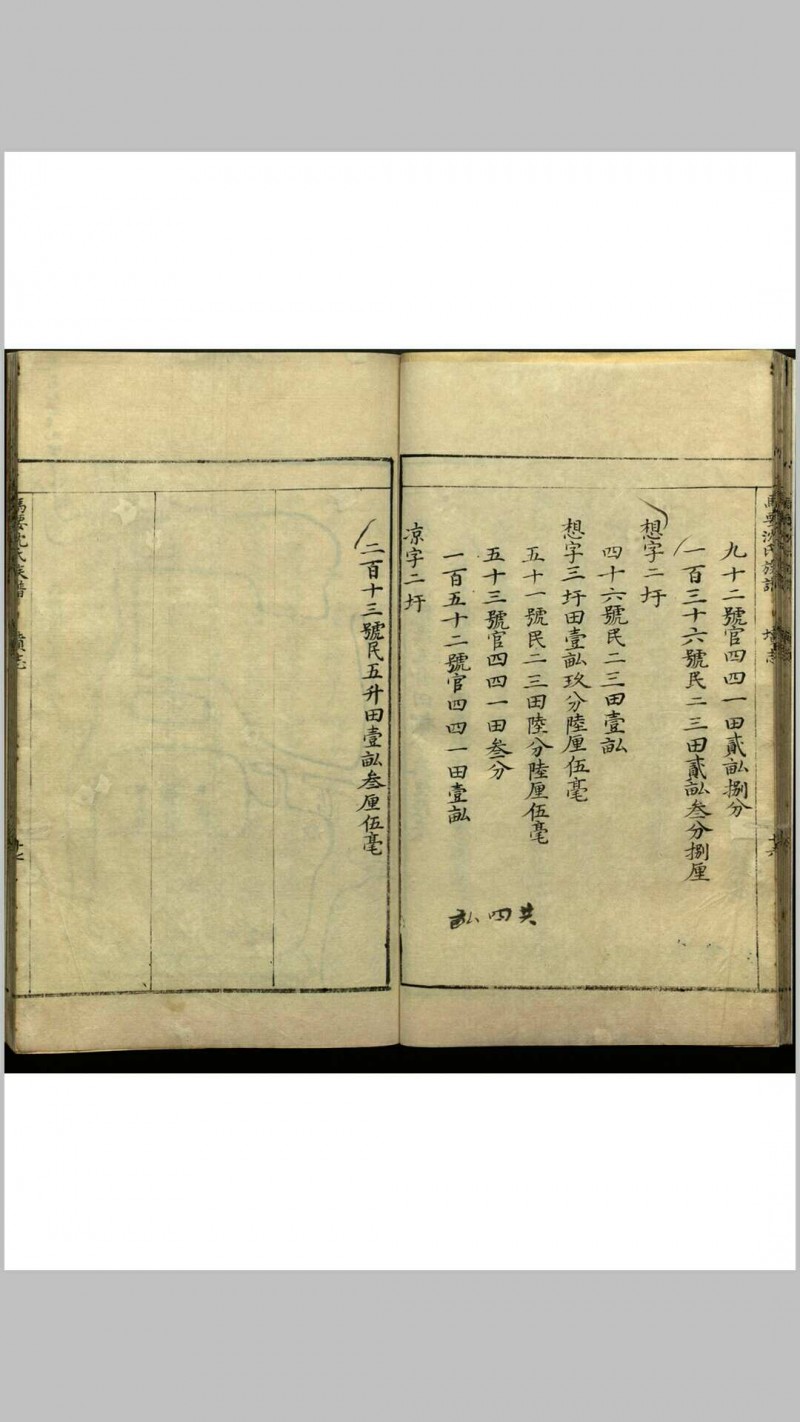 馬要沈氏族譜 墳志
九十二號官四四一田貳畝捌分
一百三十六號民二三田貳畝叁分捌厘
想字二圩
四十六號民二三田壹畝
想字三圩田壹畝玖分陸厘伍毫
五十一號民二三田陸分陸厘伍毫
五十三號官四四一田叁分
一百五十二號官四四一田壹畝
共四畝
凉字二圩
二百十三號民五升田壹畝叁厘伍毫